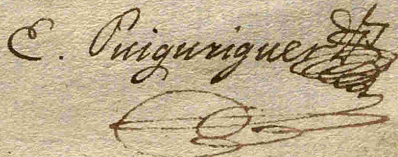 E. Puiguriguer